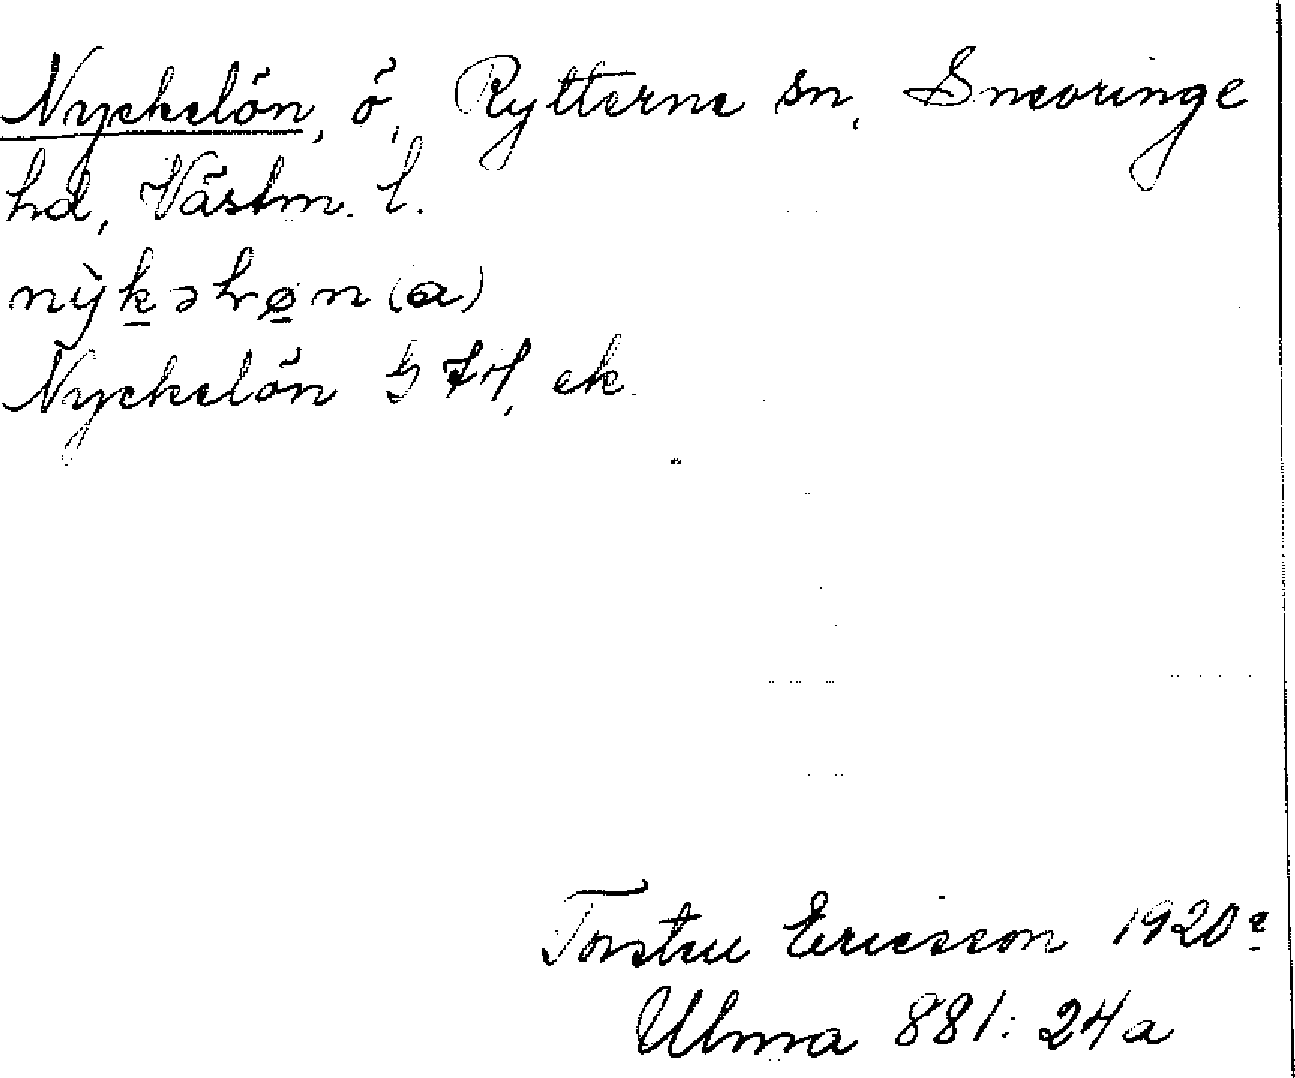 Nyckelön, ö, Rytterne sn, Snevringe
hd, Västm. l.
nỳkəlrøn (a)
Nyckelön G 74, ek.
Torsten Ericsson 1920
Ulma 881: 24a